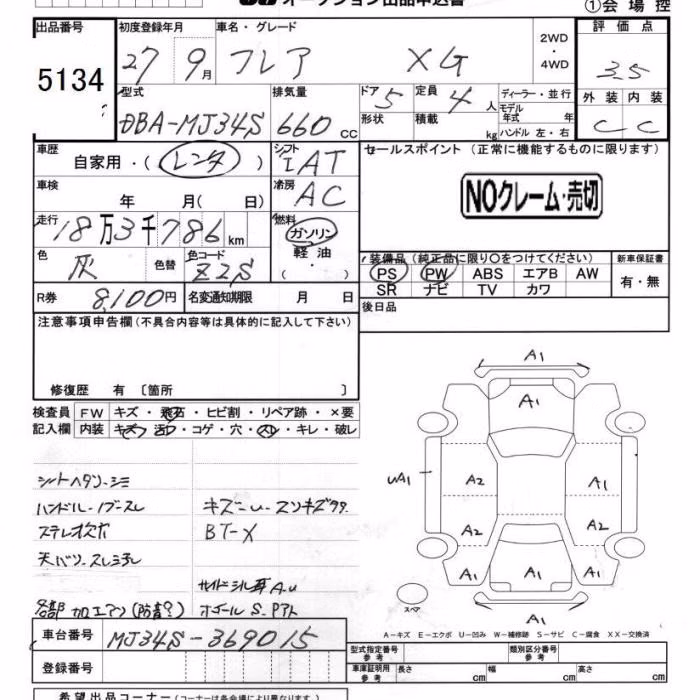 オークション出品申込書
①会場控
出品番号 初度登録年月 車名・グレード 2WD・4WD 評価点
5134 27 9月 フレア XG 3.5
型式 排気量 ドア 定員 ディーラー・並行 外装 内装
DBA-MJ34S 660cc 5 4人 モデル年式 年 C C
形状 積載 kg ハンドル 左・右
車歴 自家用・(レンタ) シフト IAT セールスポイント (正常に機能するものに限ります)
車検 年 月( 日) 冷房 AC
NOクレーム・売切
走行 18万3千786km 燃料 ガソリン
軽油
色 灰 色替 色コード ZZS
装備品 (純正品に限り〇をつけてください) 新車保証書
PS PW ABS エアB AW 有・無
SR ナビ TV カワ
R券 8,100円 名変通知期限 月 日
後日品
注意事項申告欄(不具合内容等は具体的に記入して下さい)
修復歴 有 〔箇所 〕
検査員 FW キズ・飛石・ヒビ割・リペア跡・×要
記入欄 内装 キズ・汚レ・コゲ・穴・スレ・キレ・破レ
シートヘタリ-シミ
ハンドル-ノブ-スレ
キズ-U-スリキズ
ステレオ欠品
BT-X
天バリ-スレ
サイドシル耳A.U
各部 加工アリ(防音?)
ホイールS.
A1
A1
UA1
A2
A1
A2
A1
A1
A1
A1
スペア
A-キズ E-エクボ U-凹み W-補修跡 S-サビ C-腐食 XX-交換済
車台番号 MJ34S-369015
型式指定番号 参考 類別区分番号 参考
登録番号
車庫証明用 参考 長さ cm 幅 cm 高さ cm
希望出品コーナー(コーナーは各会場により異なります)